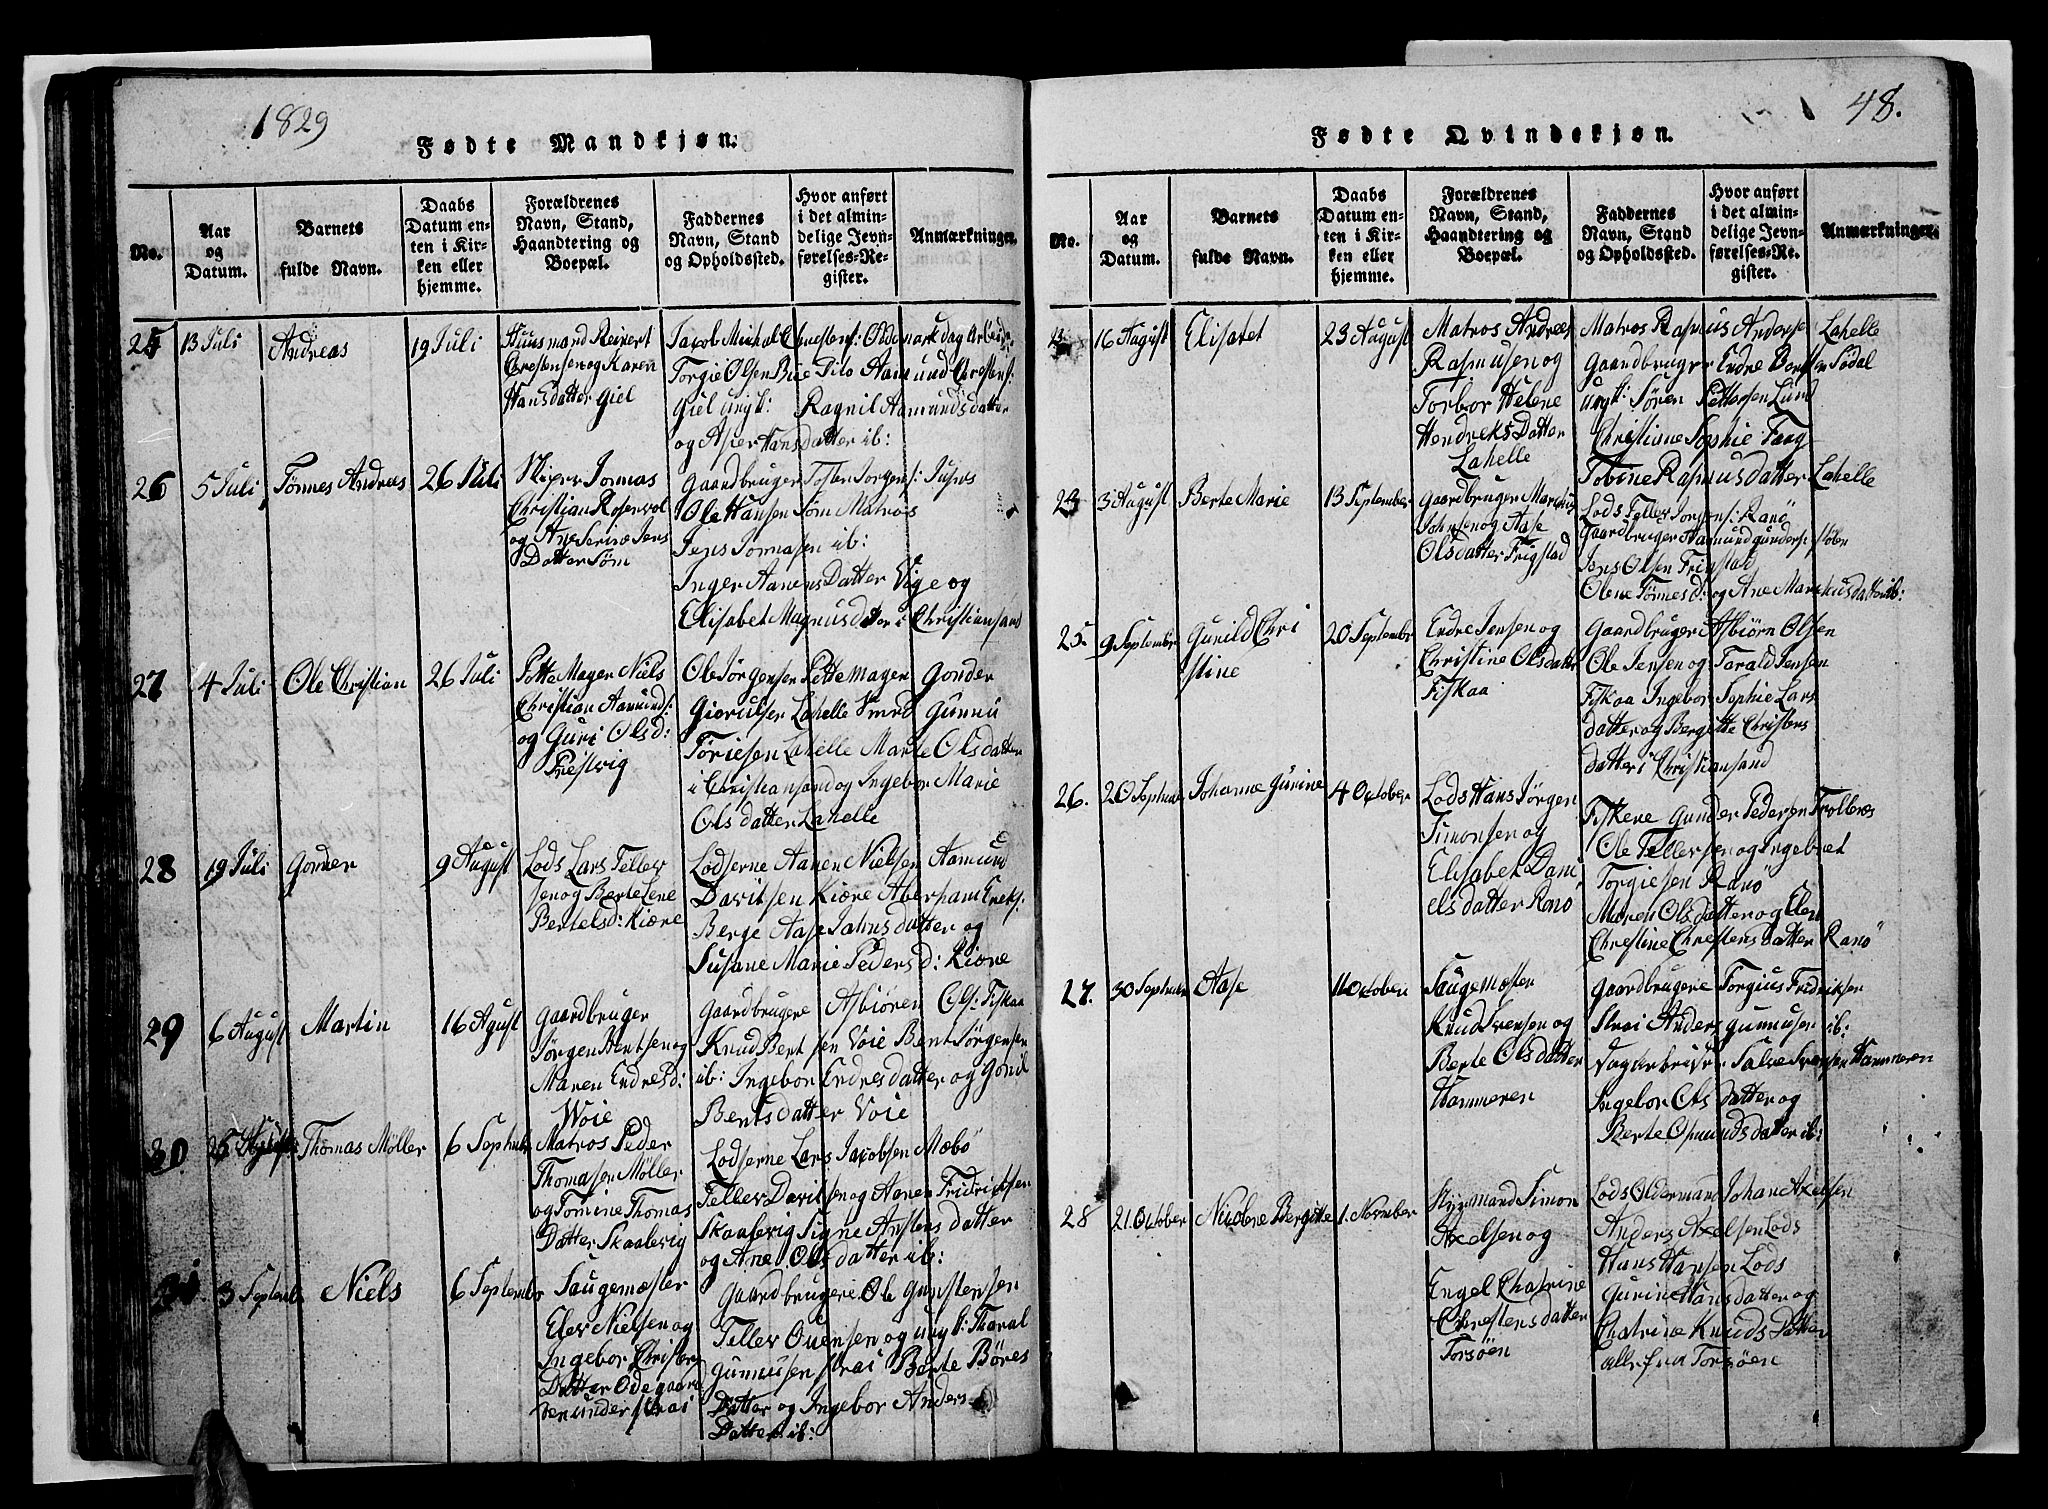 1829
Fødte Mandkjøn.
No.
Aar
og
Datum.
Barnets
fulde Navn.
Daabs
Datum en-
ten i Kir-
ken eller
hjemme.
Forældrenes
Navn, Stand,
Haandtering og
Boepæl.
Faddernes
Navn, Stand
og Opholdssted.
Hvor anført
i det almin-
delige Jevn-
førelses-Re-
gister.
Anmærkninger.
25
13 Juli
Andreas
19 Juli
Huusmand Reinert
Christensen og Karen
Hansdatter Giel
Jacob Michal Christens:
Torgie Olsen Bue Aamund Chrestens:
Giel Ungk: Ragnil Aamundsdatter
og Aser Hansdatter ib:
26
5 Juli
Tønnes Andreas
26 Juli
Jonnas
Christian Rosenvol
og Ane Serine Jens
Datter Søm
Gaardbruger Jorgens:
Ole Hansen Søm Matros
Jens Jonnasen ib:
Inger Aanens Datter Vige og
Elisabet Magnusdatter i Christiansand
27
4 Juli
Ole Christian
26 Juli
Potte Mager Niels
Christian Aamund:
og Guri Olsd:
Prestvig
Ole Jørgensen Pottemagen Gonder
Giorulsen Lahelle Gunnu
Tøriesen Lahelle Marte Olsdatter
i Christiansand og Ingebor Marie
Olsdatter Lahelle
28
19 Juli
Gonder
9 August
Lods Lars Teller
sen og Berte Lene
Bertelsd: Kiære
Lodserne Aanen Nielsen Aamund
Davitsen Kiære Aberham Ereks:
Berge Aase Jahnsdatter og
Susane Marie Pedersd: Kiære
29
6 August
Martin
16 Agust
Gaardbruger
Jørgen Bentsen og
Maren Endresd:
Woie
Gaardbrugere Asbiøren Ols: Fiskaa
Knud Bertsen Voie Bent Jørgensen
ib: Ingebor Endresdatter og Gonil
Bentsdatter Voie
30
25 August
Thomas Møller
6 Septmb
Matros Peder
Thomasen Møller
og Tomine Thomas
Datter Skaalevig
Lodserne Lars Jacobsen Mæbø
Teller Davitsen og Aanen Fridrichsen
Skaalevig Signe Anstensdatter
og Ane Olsdatter ib:
31.
3 Septemb
Niels
6 September
Saugemæster
Elev Nielsen og
Ingebor Christens
Datter Odegaard
under Strai
Gaardbrugere Ole Gunstensen
Tellev Ouensen og Ungk: Tharal
Gunnusen Strai Berte Børes
Datter og Ingebor Anders
Datter ib:
48.
Fødte Qvindekjøn.
No.
Aar
og
Datum.
Barnets
fulde Navn.
Daabs
Datum en-
ten i Kir-
ken eller
hjemme.
Forældrenes
Navn, Stand,
Haandtering og
Boepæl.
Faddernes
Navn, Stand
og Opholdssted.
Hvor anført
i det almin-
delige Jevn-
førelses-Re-
gister.
Anmærkninger.
16 August
Elisabet
23 August
Matros Andreas
Rasmusen og
Torbor Helene
Hendreks Datter
Lahelle
Matros Rasmus Anderse Lahelle
Gaardbruger Endre Bentsen Sødal
Ungk: Søren Pettersen Lund
Christiane Sophie Faag
Tobine Rasmusdatter Lahelle
3 August
Berte Marie
13 September
Gaardbruger Marcus
Johnsen og Aase
Olsdatter Frigstad
Lods Teller Jorgens: Ranø
Gaardbruger Aamund Gunders: Støbn
Jens Olsen Frigstad
Olene Tønnesd: og Ane Markusdatter ib:
25.
9 September
Gunild Chri
stine
20 September
Endre Jensen og
Christine Olsdatter
Fiskaa
Gaardbrugeri Asbiørn Olsen
Ole Jensen og Tarald Jensen
Fiskaa Ingebor Sophie Lars
datter og Bergitte Christens
datter i Christiansand
26.
20 Septmber
Johanne Gurine
4 October
Lods Hans Jørgen
Simonsen og
Elisabet Dani
elsdatter Ranø
Fiskene Gunder Pedersen Trolleres
Ole Tellersen og Ingebret
Torgiesen Ranø
Maren Olsdatter og Elen
Chrestine Chrestens datter Ranø
27.
30 Septmber
Aase
11 October
Saugemæsten
Knud Svensen og
Berte Olsdatter
Hammeren
Gaardbrugerie Torgius Fridriksen
Strai Anders Gunnusen ib:
Salve Svensen Hammeren
Ingebor Ols datter og
Berte Osmundsdatter ib:
28
21. October
Nicolene Bergitte
1. November
Simon
Axelsen og
Engel Chatrine
Chrestensdatter
Torsøen
Lods Oldermand Johan Axelsen
Anders Axelsen Lods
Hans Hansen Lods
Gurine Hansdatter og
Chatrine Knuds Datter
alle fra Torsøen